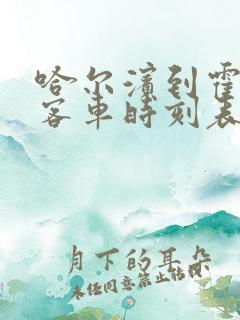 哈尔滨到霍
客车时刻表
月下的耳朵
未经同意禁止转载